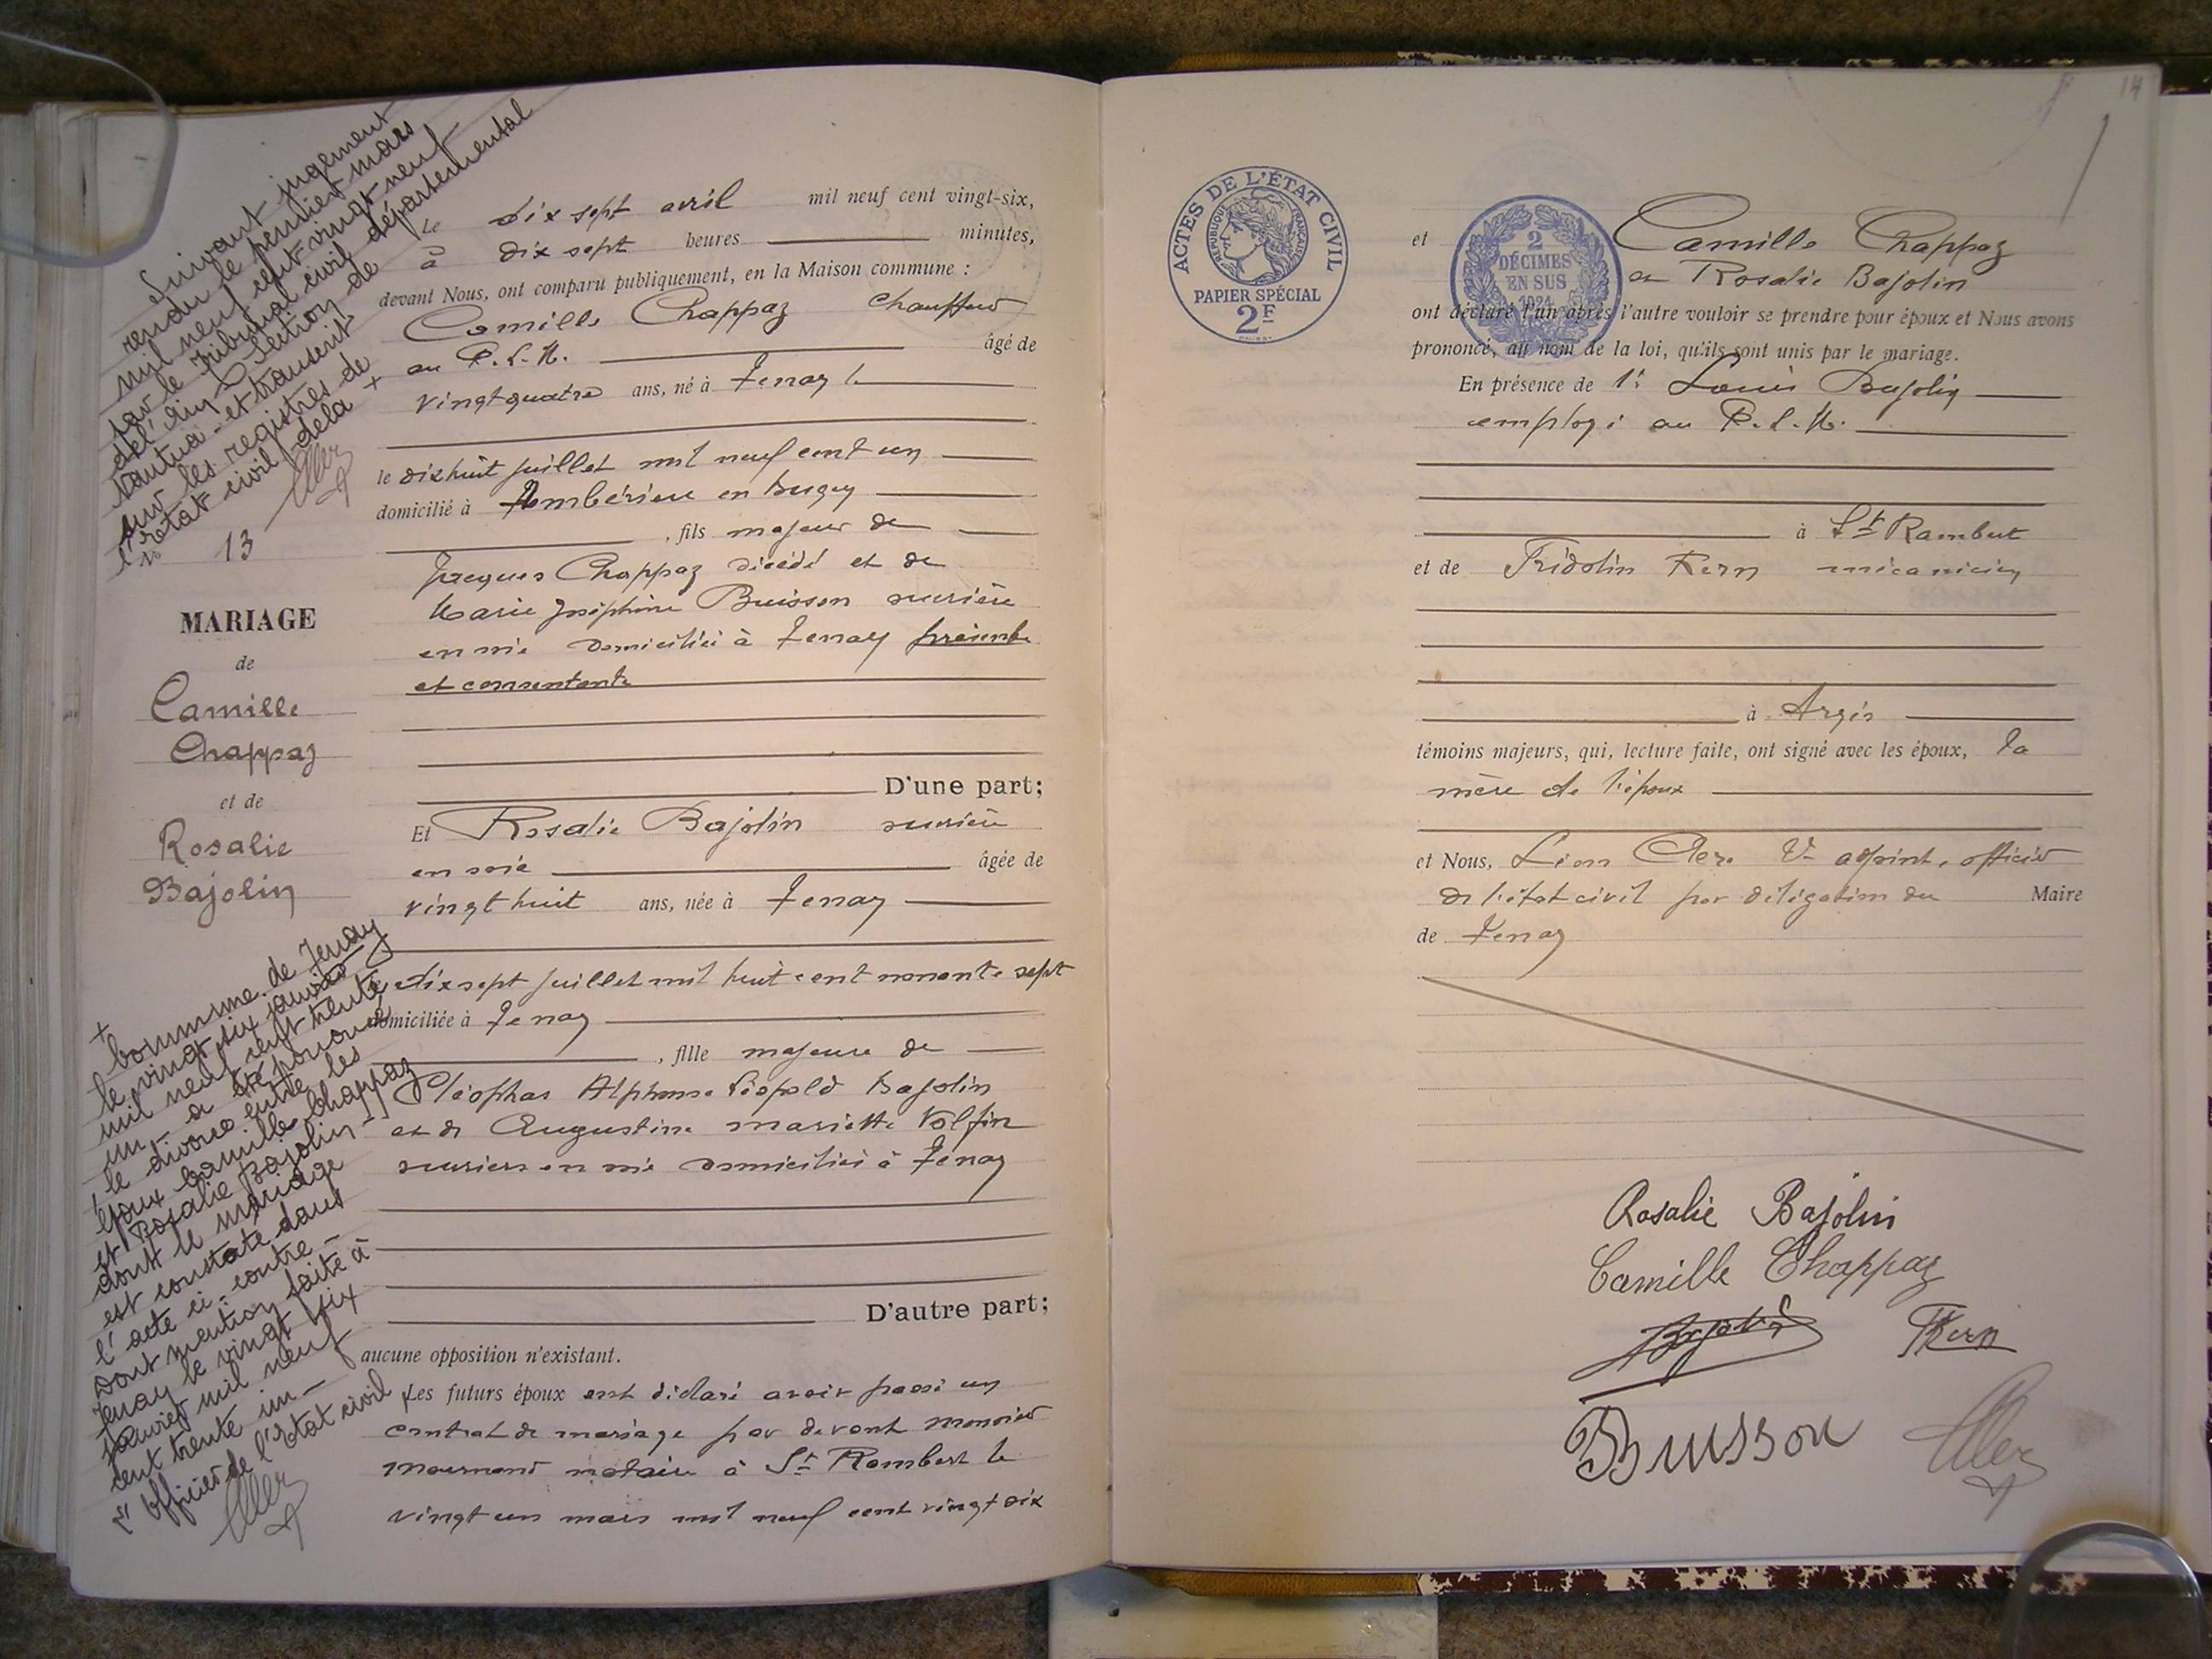 Suivant jugement
rendu le premier mars
mil neuf cent vingt neuf
par le Tribunal civil départemental
de l'Ain Section de
Nantua - et transcrit
sur les registres de
l'état civil de la +
No 13
MARIAGE
de
Camille
Chappaz
et de
Rosalie
Bajolin
+
Commune de Tenay
le vingt six janvier
mil neuf cent trente
un - a été prononcé
le divorce entre les
époux Camille Chappaz
et Rosalie Bajolin -
dont le mariage
est constaté dans
l'acte ci-contre -
Dont mention faite à
Tenay le vingt six
janvier mil neuf
cent trente un -
L'officier de l'Etat civil
Le dix sept avril mil neuf cent vingt-six,
à dix sept heures minutes,
devant Nous, ont comparu publiquement, en la Maison commune :
Camille Chappaz chauffeur
au P.L.M. âgé de
vingt quatre ans, né à Tenay le
le dix huit juillet mil neuf cent un
domicilié à Ambérieu en Bugey
, fils majeur de
Jacques Chappaz décédé et de
Marie Joséphine Buisson ouvrière
en soie domiciliée à Tenay présente
et consentante
D'une part;
Et Rosalie Bajolin ouvrière
en soie âgée de
vingt huit ans, née à Tenay
le dix sept juillet mil huit cent nonante sept
domiciliée à Tenay
, fille majeure de
Cléophas Alphonse Léopold Bajolin
et de Augustine Mariette Volfin
ouvriers en soie domiciliés à Tenay
D'autre part;
aucune opposition n'existant.
Les futurs époux ont déclaré avoir passé un
contrat de mariage par devant Monsieur
notaire à St Rambert le
vingt un mars mil neuf cent vingt six
14
ACTES DE L'ÉTAT CIVIL
REPUBLIQUE FRANCAISE
PAPIER SPÉCIAL
2F
2
DÉCIMES
EN SUS
1924
et Camille Chappaz
et Rosalie Bajolin
ont déclaré l'un après l'autre vouloir se prendre pour époux et Nous avons
prononcé, au nom de la loi, qu'ils sont unis par le mariage.
En présence de 1° Louis Bajolin
employé au P.L.M.
à St Rambert
et de Fridolin Kern mécanicien
à Argis
témoins majeurs, qui, lecture faite, ont signé avec les époux, la
mère de l'époux
et Nous, Léon Clerc adjoint, officier
de l'état civil par délégation du Maire
de Tenay
Rosalie Bajolin
Camille Chappaz
Bajolin Kern
Buisson